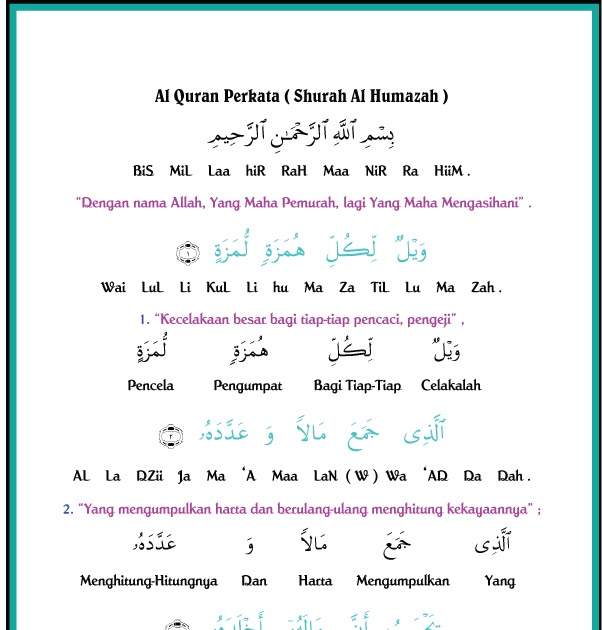 Al Quran Perkata ( Shurah Al Humazah )
بِسْمِ ٱللَّهِ ٱلرَّحْمَـٰنِ ٱلرَّحِيمِ
BiS MiL Laa hiR RaH Maa NiR Ra HiiM .
“Dengan nama Allah, Yang Maha Pemurah, lagi Yang Maha Mengasihani” .
وَيْلٌ لِّكُلِّ هُمَزَةٍ لُّمَزَةٍ ١
Wai LuL Li KuL Li hu Ma Za TiL Lu Ma Zah .
1. “Kecelakaan besar bagi tiap-tiap pencaci, pengeji” ,
وَيْلٌ لِّكُلِّ هُمَزَةٍ لُّمَزَةٍ
Pencela Pengumpat Bagi Tiap-Tiap Celakalah
ٱلَّذِى جَمَعَ مَالاً وَ عَدَّدَهُۥ ٢
AL La DZii Ja Ma ‘A Maa LaN ( W ) Wa ‘AD Da Dah .
2. “Yang mengumpulkan harta dan berulang-ulang menghitung kekayaannya” ;
ٱلَّذِى جَمَعَ مَالاً وَ عَدَّدَهُۥ
Menghitung-Hitungnya Dan Harta Mengumpulkan Yang